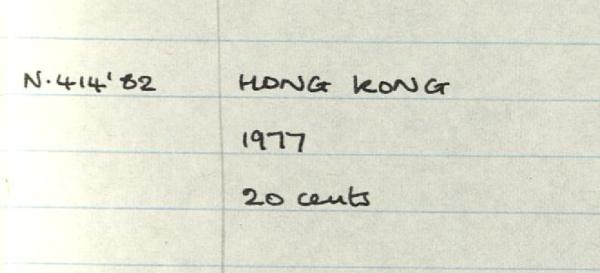 N.414'82 HONG KONG
1977
20 cents